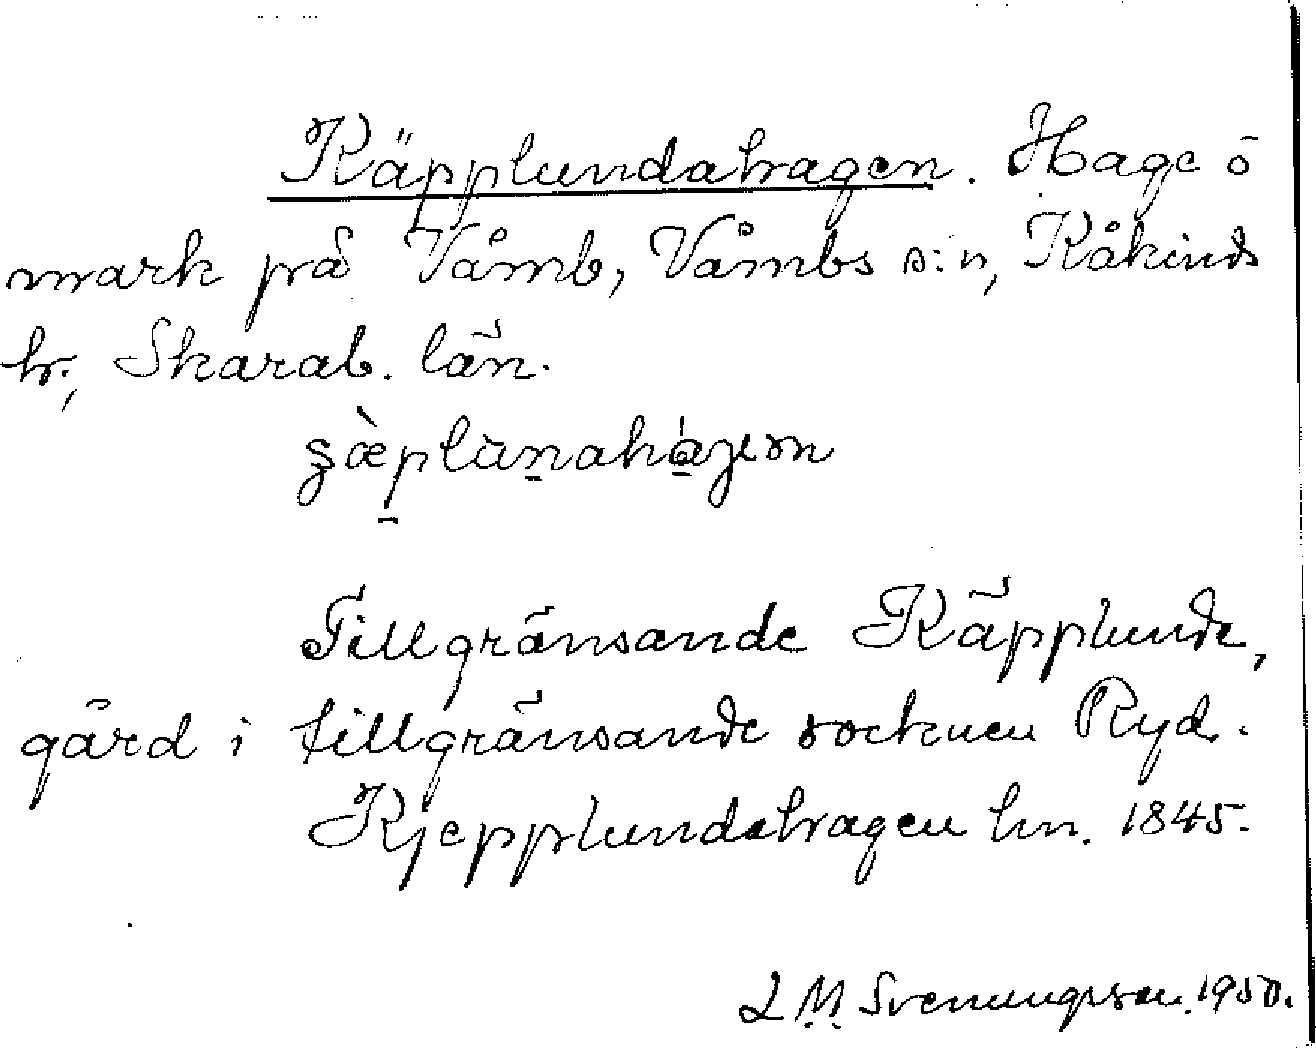 Käpplundahagen. Hage ö
mark på Våmb, Våmbs s:n, Kåkinds
hr., Skarab. län.
Tillgränsande Käpplunda,
gård i tillgränsande socknen Ryd.
Kjepplundahagen lm. 1845.
L M Svenungsson. 1950.